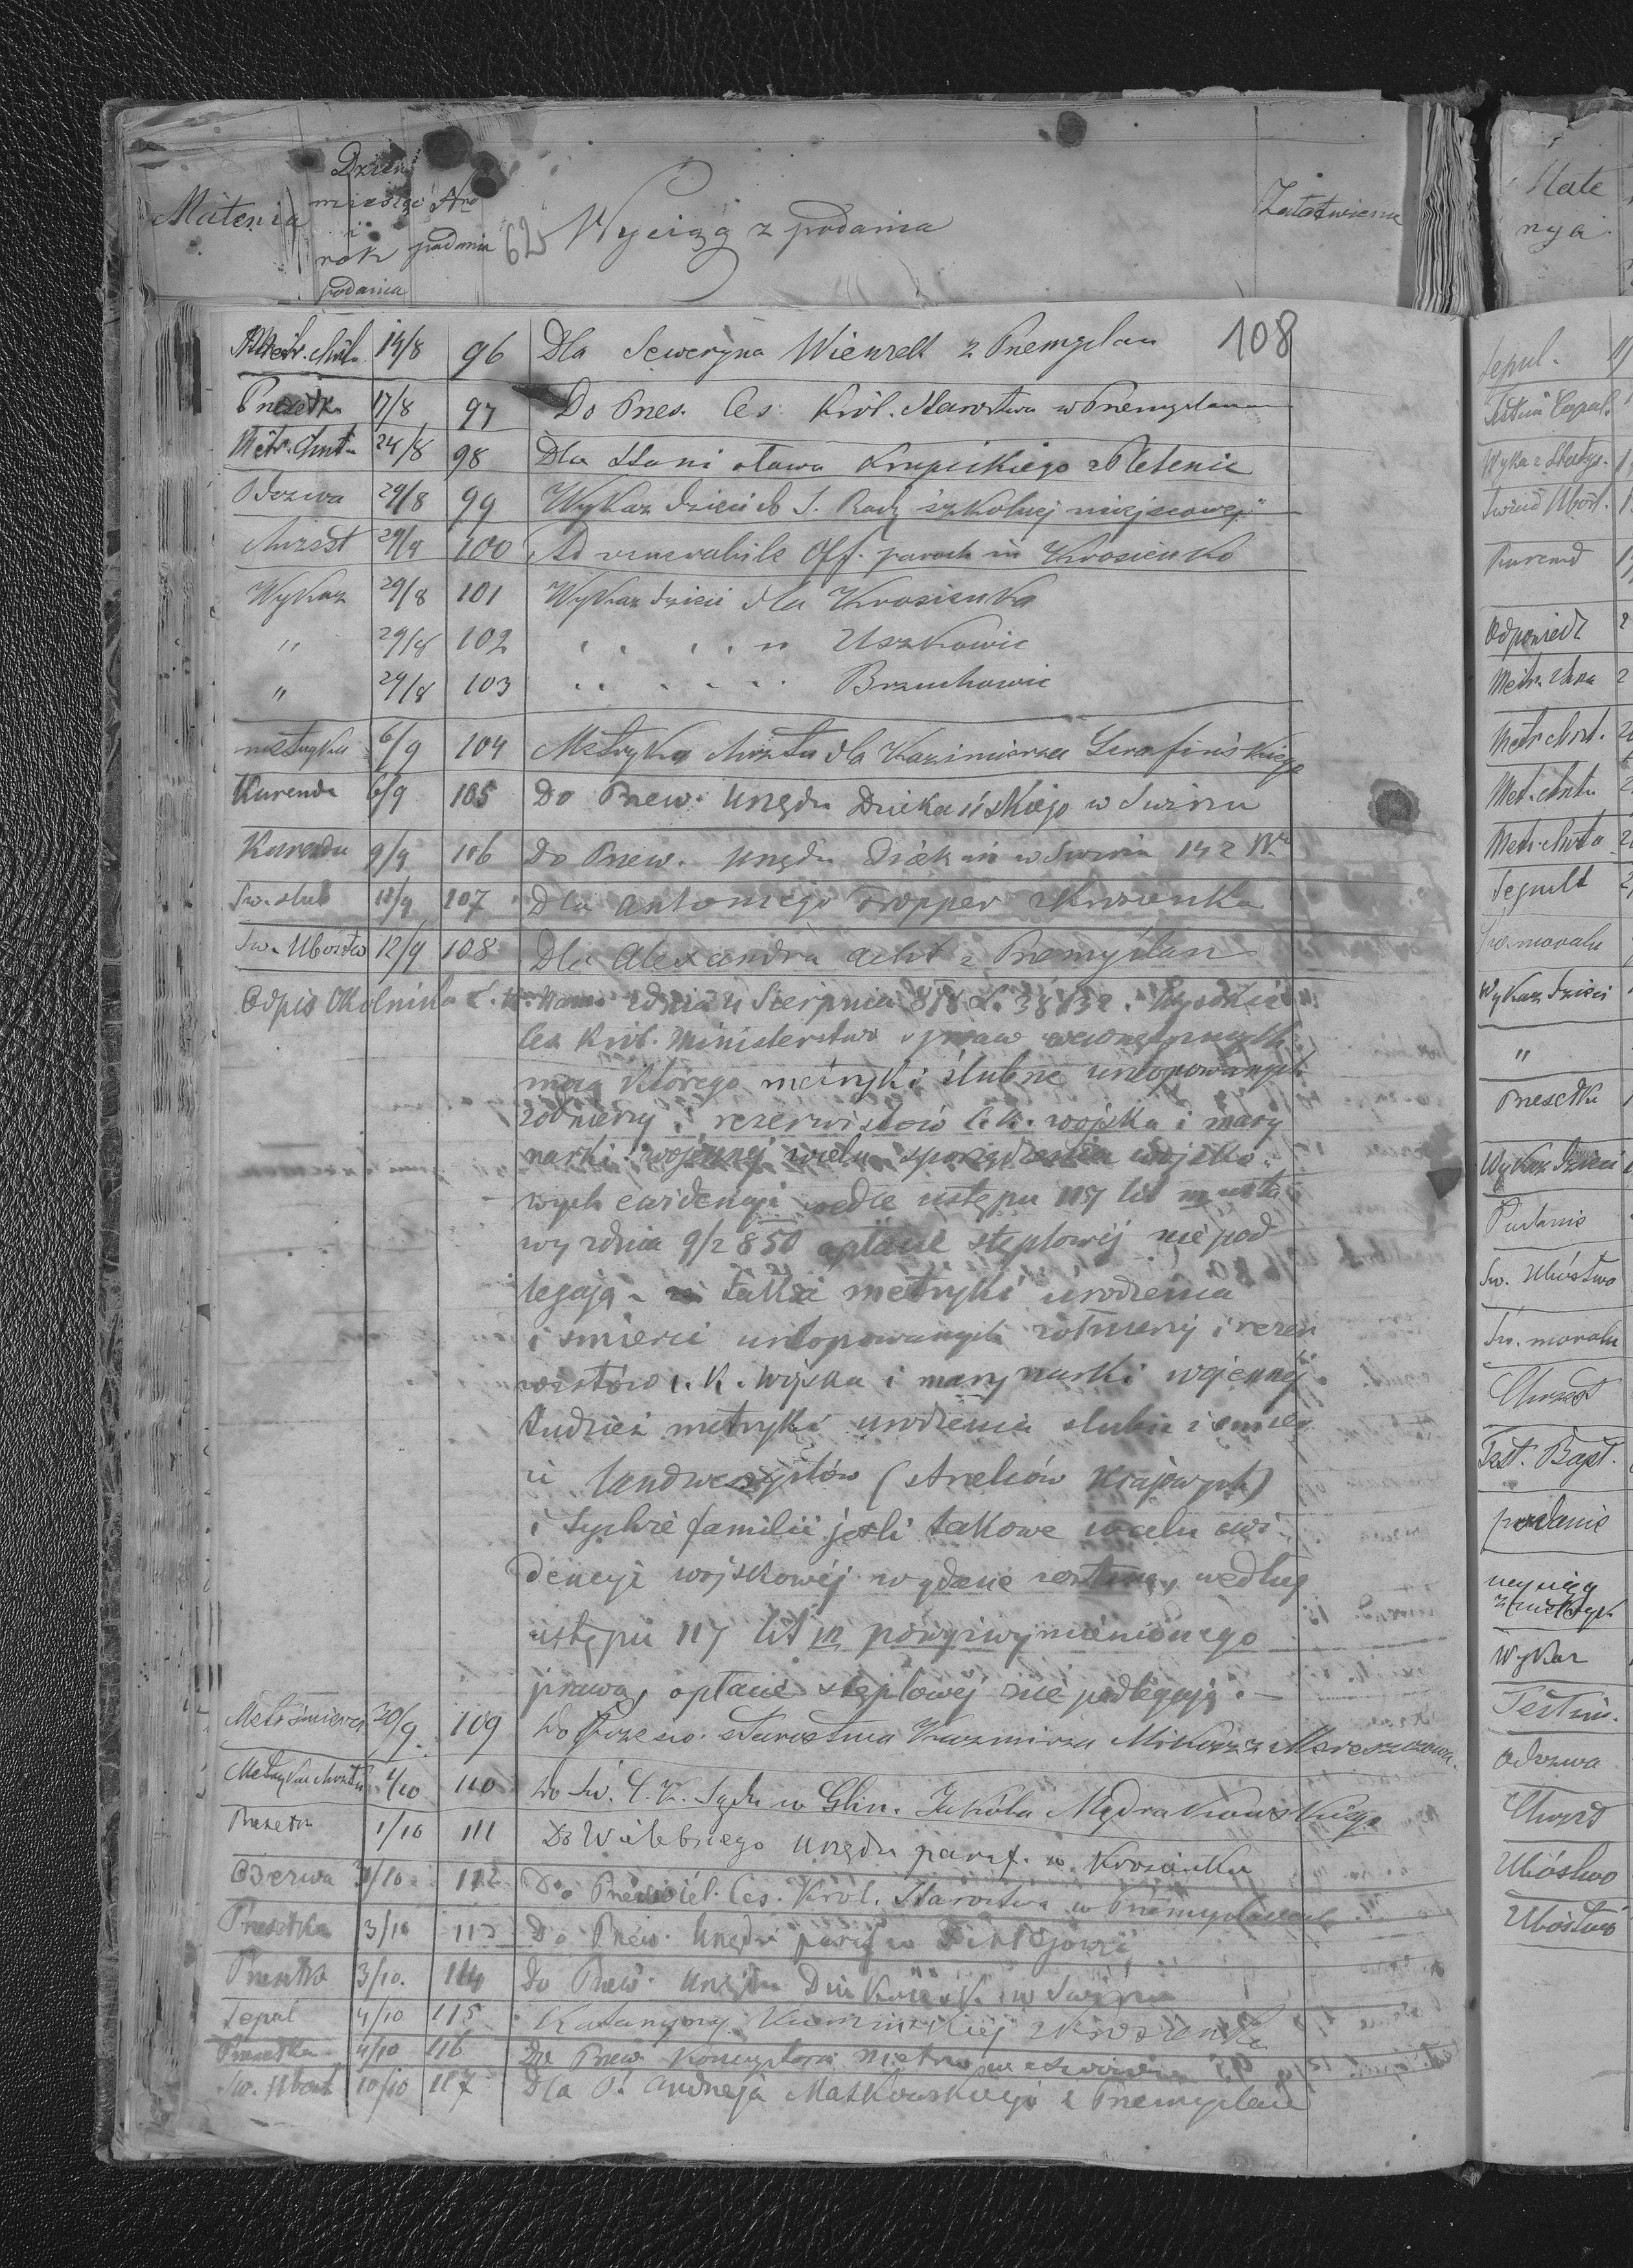 Materia
Dzień
miesiąc
i
rok
podania
Nro
podania
62
Wyciąg z podania
Załatwienie
108
14/8 96 Dla Seweryna z Przemyslan
Przesełka 17/8 97 Do Prześ. Ces Król. Starostwa w Przemyslanach
Metr. chrztu 24/8 98 Dla Stanisława Krupickiego z Pletenic
Odezwa 29/8 99 Wykaz dzieci do Rady szkolnej miejscowej
Chrzest 29/8 100 Ad venerabile Off. paroch in Krosienko
Wykaz 29/8 101 Wykaz dzieci dla Krosienka
" 29/8 102 " Uszkowic
" 29/8 103 " Brzuchowic
metryka 6/9 104 Metryka chrztu dla Kazimierza Serafińskiego
Kurenda 6/9 105 Do Przew. Urzędu Dziekańskiego w Swirzu
Kurenda 9/9 106 Do Przew. Urzędu Dziekań w Swirzu
Św. slub 11/9 107 Dla Antoniego Tropper z Krosienka
Św. Ubóstwo 12/9 108 Dla Alexandra z Przemyślan
Odpis Okolnika z dnia 4 Sierpnia 878 L. 38132. Wysokie
Ces Król. Ministerstwo spraw wewnętrznych
mocą którego metryki ślubne urlopowanych
żołnierzy i rezerwistów c. k. wojska i mary
narki wojennej w celu sporządzenia wojsko
wych ewidencyi wedle ustępu 117 lit m usta
wy z dnia 9/2 850 opłacie stęplowej nie pod
legają - także metryki urodzenia
i śmierci urlopowanych żołnierzy i rezer
wistów c. k. wojska i marynarki wojennej
tudzież metryki urodzenia slubu i smier
ci landwerzystów (strzelców krajowych)
i tychże familii jeśli takowe w celu ewi
dencyi wojskowej wydane zostaną, według
ustępu 117 lit m powyżwymienionego
prawa, opłacie stęplowej nie podlegają. -
Metr śmierci 20/9 109 Do Przesw. Starostwa Kazmirza Mikosz z Mereszczowa
Metryka chrztu 1/10 110 Do Św. C. K. Sądu w Glin. Jakóba Mądrakowskiego
Przesełk 1/10 111 Do Wielebnego Urzędu paraf. w Krosienku
Odezwa 3/10 112 Do Przewiel. Ces. Król. Starostwa w Przemyslanach
Przesełka 3/10 113 Do Przew. Urzędu paraf w Firlejowie
Przesełka 3/10. 114 Do Przew. Urzędu Dziekańsk. w Swirzu
Sepul 4/10 115 Katarzyny z Krosienka
Przesełka 4/10 116 Do Przew. Konsystorza Metro we Lwowie
Św. Ubóst 10/10 117 Dla P. Andrzeja Małkowskiego z Przemyslan
Mate
rya
Sepul.
Wykaz z
Odpowiedź
Metr. chrztu
Metr. chrzt.
Met. chrztu
Metr. chrzta
Sepult
Św. moraln
Wykaz dzieci
"
Przesełka
Wykaz dzieci
Podanie
Św. Ubóstwo
Św. moraln
Chrzest
Test. Bapt.
podanie
wyciąg
z metryk
Wykaz
Testim.
Odezwa
Chrzest
Ubóstwo
Ubóstwo